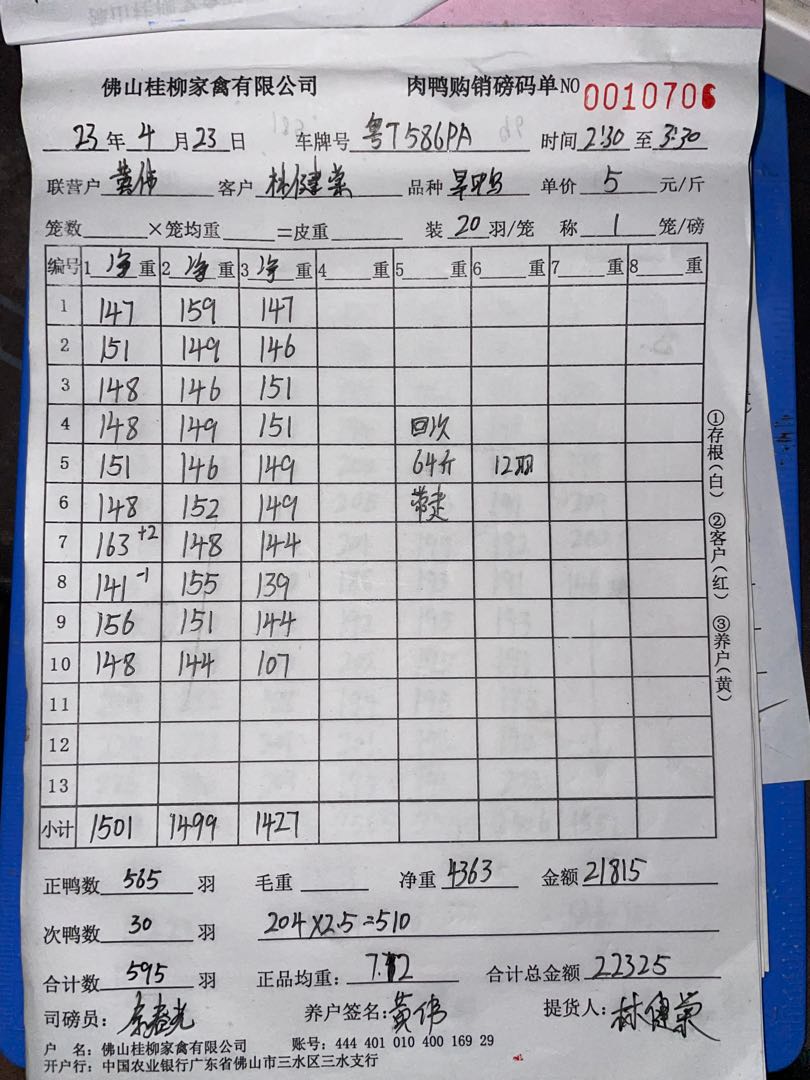 佛山桂柳家禽有限公司 肉鸭购销磅码单 NO 0010706
23年4月23日 车牌号 粤T586PA 时间 2:30 至 3:30
联营户 黄伟 客户 林健荣 品种 单价 5 元/斤
笼数 ×笼均重 =皮重 装 20 羽/笼 称 1 笼/磅
编号 1 净 重 2 净 重 3 净 重 4 重 5 重 6 重 7 重 8 重
1 147 159 147
2 151 149 146
3 148 146 151
4 148 149 151 回次
5 151 146 149 64斤 12羽
6 148 152 149 带走
7 163+2 148 144
8 141-1 155 139
9 156 151 144
10 148 144 107
11
12
13
小计 1501 1499 1427
正鸭数 565 羽 毛重 净重 4363 金额 21815
次鸭数 30 羽 204×2.5=510
合计数 595 羽 正品均重: 7.72 合计总金额 22325
司磅员: 养户签名: 黄伟 提货人: 林健荣
户 名: 佛山桂柳家禽有限公司 账号: 444 401 010 400 169 29
开户行: 中国农业银行广东省佛山市三水区三水支行
①存根(白) ②客户(红) ③养户(黄)